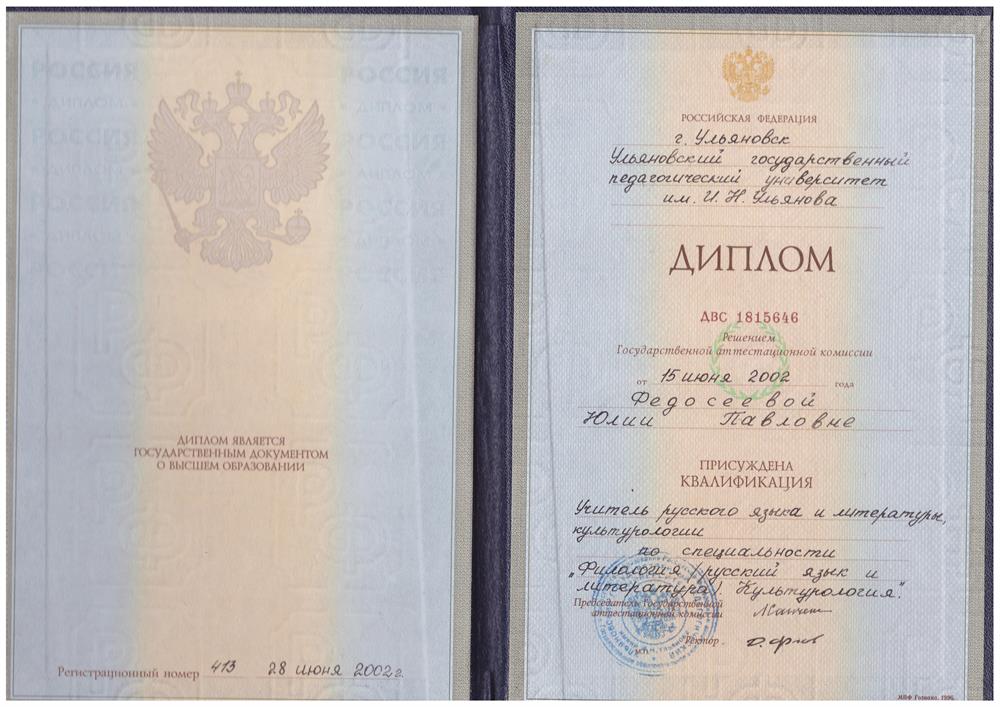 РОССИЯ РОССИЯ
ДИПЛОМ ДИПЛОМ
РОССИЯ РОССИЯ
ДИПЛОМ ДИПЛОМ
РОССИЯ РОССИЯ
ДИПЛОМ ДИПЛОМ
ДИПЛОМ ЯВЛЯЕТСЯ
ГОСУДАРСТВЕННЫМ ДОКУМЕНТОМ
О ВЫСШЕМ ОБРАЗОВАНИИ
Регистрационный номер 413 28 июня 2002 г.
РОССИЙСКАЯ ФЕДЕРАЦИЯ
г. Ульяновск
Ульяновский государственный
педагогический университет
им. И. Н. Ульянова
ДИПЛОМ
ДВС 1815646
Решением
Государственной аттестационной комиссии
от 15 июня 2002 года
Федосеевой
Юлии Павловне
ПРИСУЖДЕНА
КВАЛИФИКАЦИЯ
Учитель русского языка и литературы,
культурологии
по специальности
„Филология (русский язык и
литература). Культурология".
Председатель Государственной
аттестационной комиссии
Ректор
М.П.
МПФ Гознака. 1996.